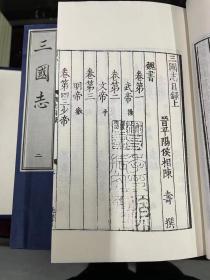 三國志目録上
晉平陽侯相陳 壽 撰
魏書
卷第一
武帝操
卷第二
文帝丕
卷第三
明帝叡
卷第四三少帝
三國志
二